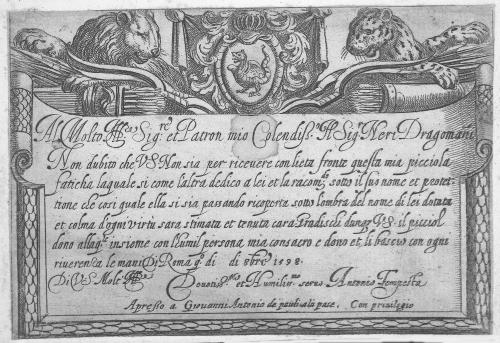 Al Molto Ill.re Sig.re et Patron mio Colendiss.o Il Sig.r Neri Dragomani
Non dubito che V.S. Non sia per riceuere con lieta fronte questa mia picciola
faticha laquale si come l'altra dedico a lei et la racom.do sotto il suo nome et protet-
tione che cosi quale ella si sia passando ricoperta sotto lombra del nome di lei dotata
et colma d'ogni virtu sara stimata et tenuta cara Gradischi dunq. V.S. il picciol
dono allag.to insieme con l'humil persona mia consacro e dono et li bascio con ogni
riuerenza le mani Di Roma q.o di di 8bre 1598.
Di V.S. Molt. Ill.re Deuotis.mo et Humiliss.mo seruo Antonio Tempesta
Apresso a Giouanni Antonio de paulis ala pase. Con priuilegio